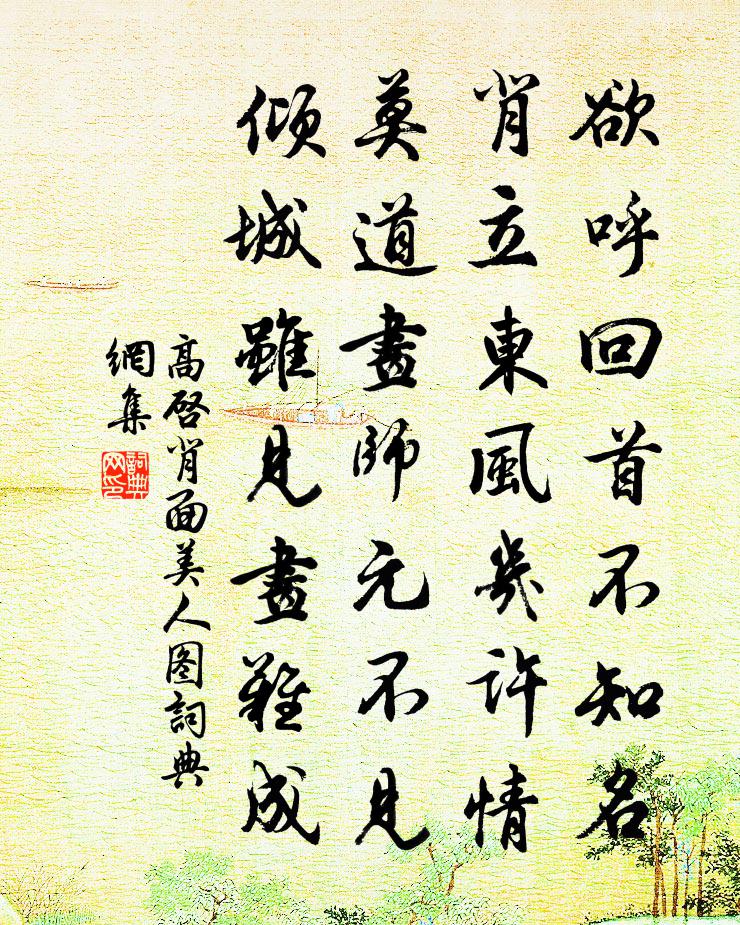 欲呼回首不知名
肖立東風幾許情
莫道畫師元不見
傾城雖見畫難成
高啓肖面美人图詞典
網集
詞典
网印